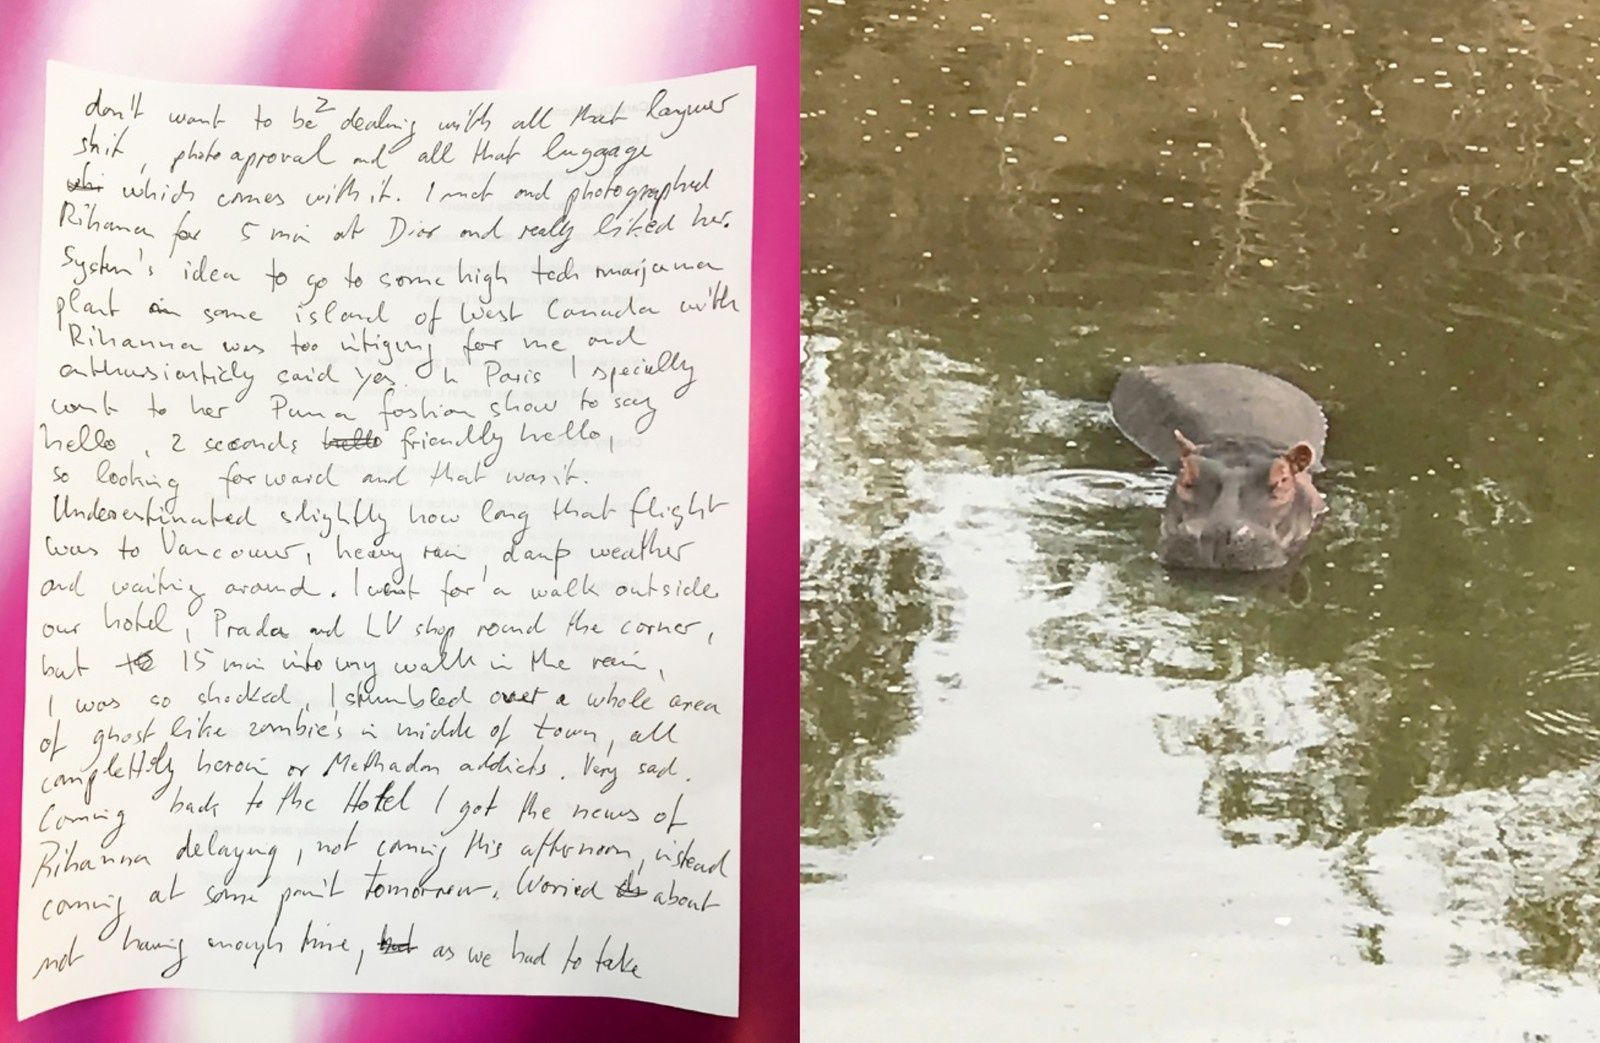 2
don't want to be dealing with all that lawyer
shit, photo aproval and all that luggage
which comes with it. I met and photographed
Rihanna for 5 min at Dior and really liked her.
System's idea to go to some high tech marjuana
plant in some island of West Canada with
Rihanna was too intiging for me and
enthusiasticly said yes. In Paris I specially
went to her Puma fashion show to say
hello, 2 seconds hello friendly hello,
so looking forward and that was it.
Underestimated slightly how long that flight
was to Vancouver, heavy rain, damp weather
and waiting around. I went for a walk outside
our hotel, Prada and LV shop round the corner,
but 15 min into my walk in the rain,
I was so shocked, I stumbled over a whole area
of ghost like zombie's in middle of town, all
complettly heroin or Methadon addicts. Very sad.
Coming back to the Hotel I got the news of
Rihanna delaying, not coming this afternoon, instead
coming at some point tomorrow. Woried about
not having enough time, but as we had to take